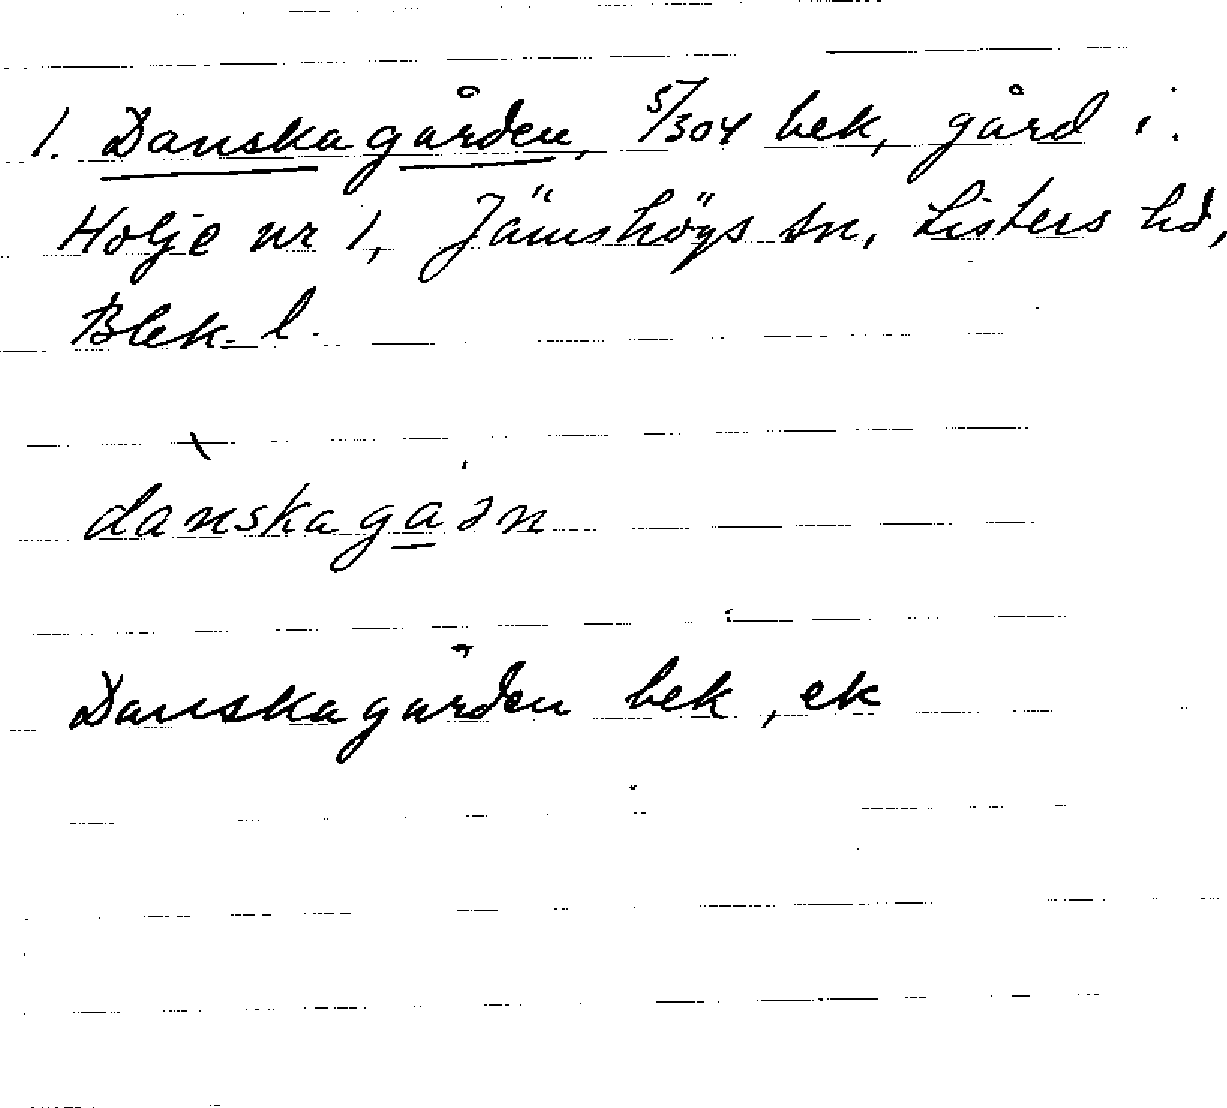 1. Danskagården, 5/304 bek, gård i
Holje nr 1, Jämshögs sn, Listers hd,
Blek. l.
dànskaga̲ən
Danskagården bek, ek